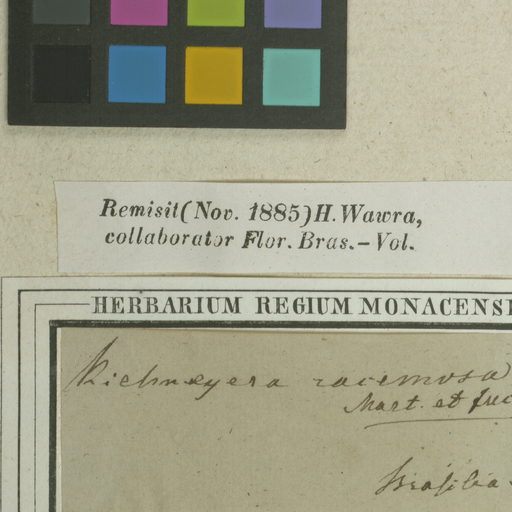 Remisit (Nov. 1885) H. Wawra,
collaborator Flor. Bras. – Vol.
HERBARIUM REGIUM MONACENSE
Kielmeyera racemosa
Mart. et Zucc
Brasilia